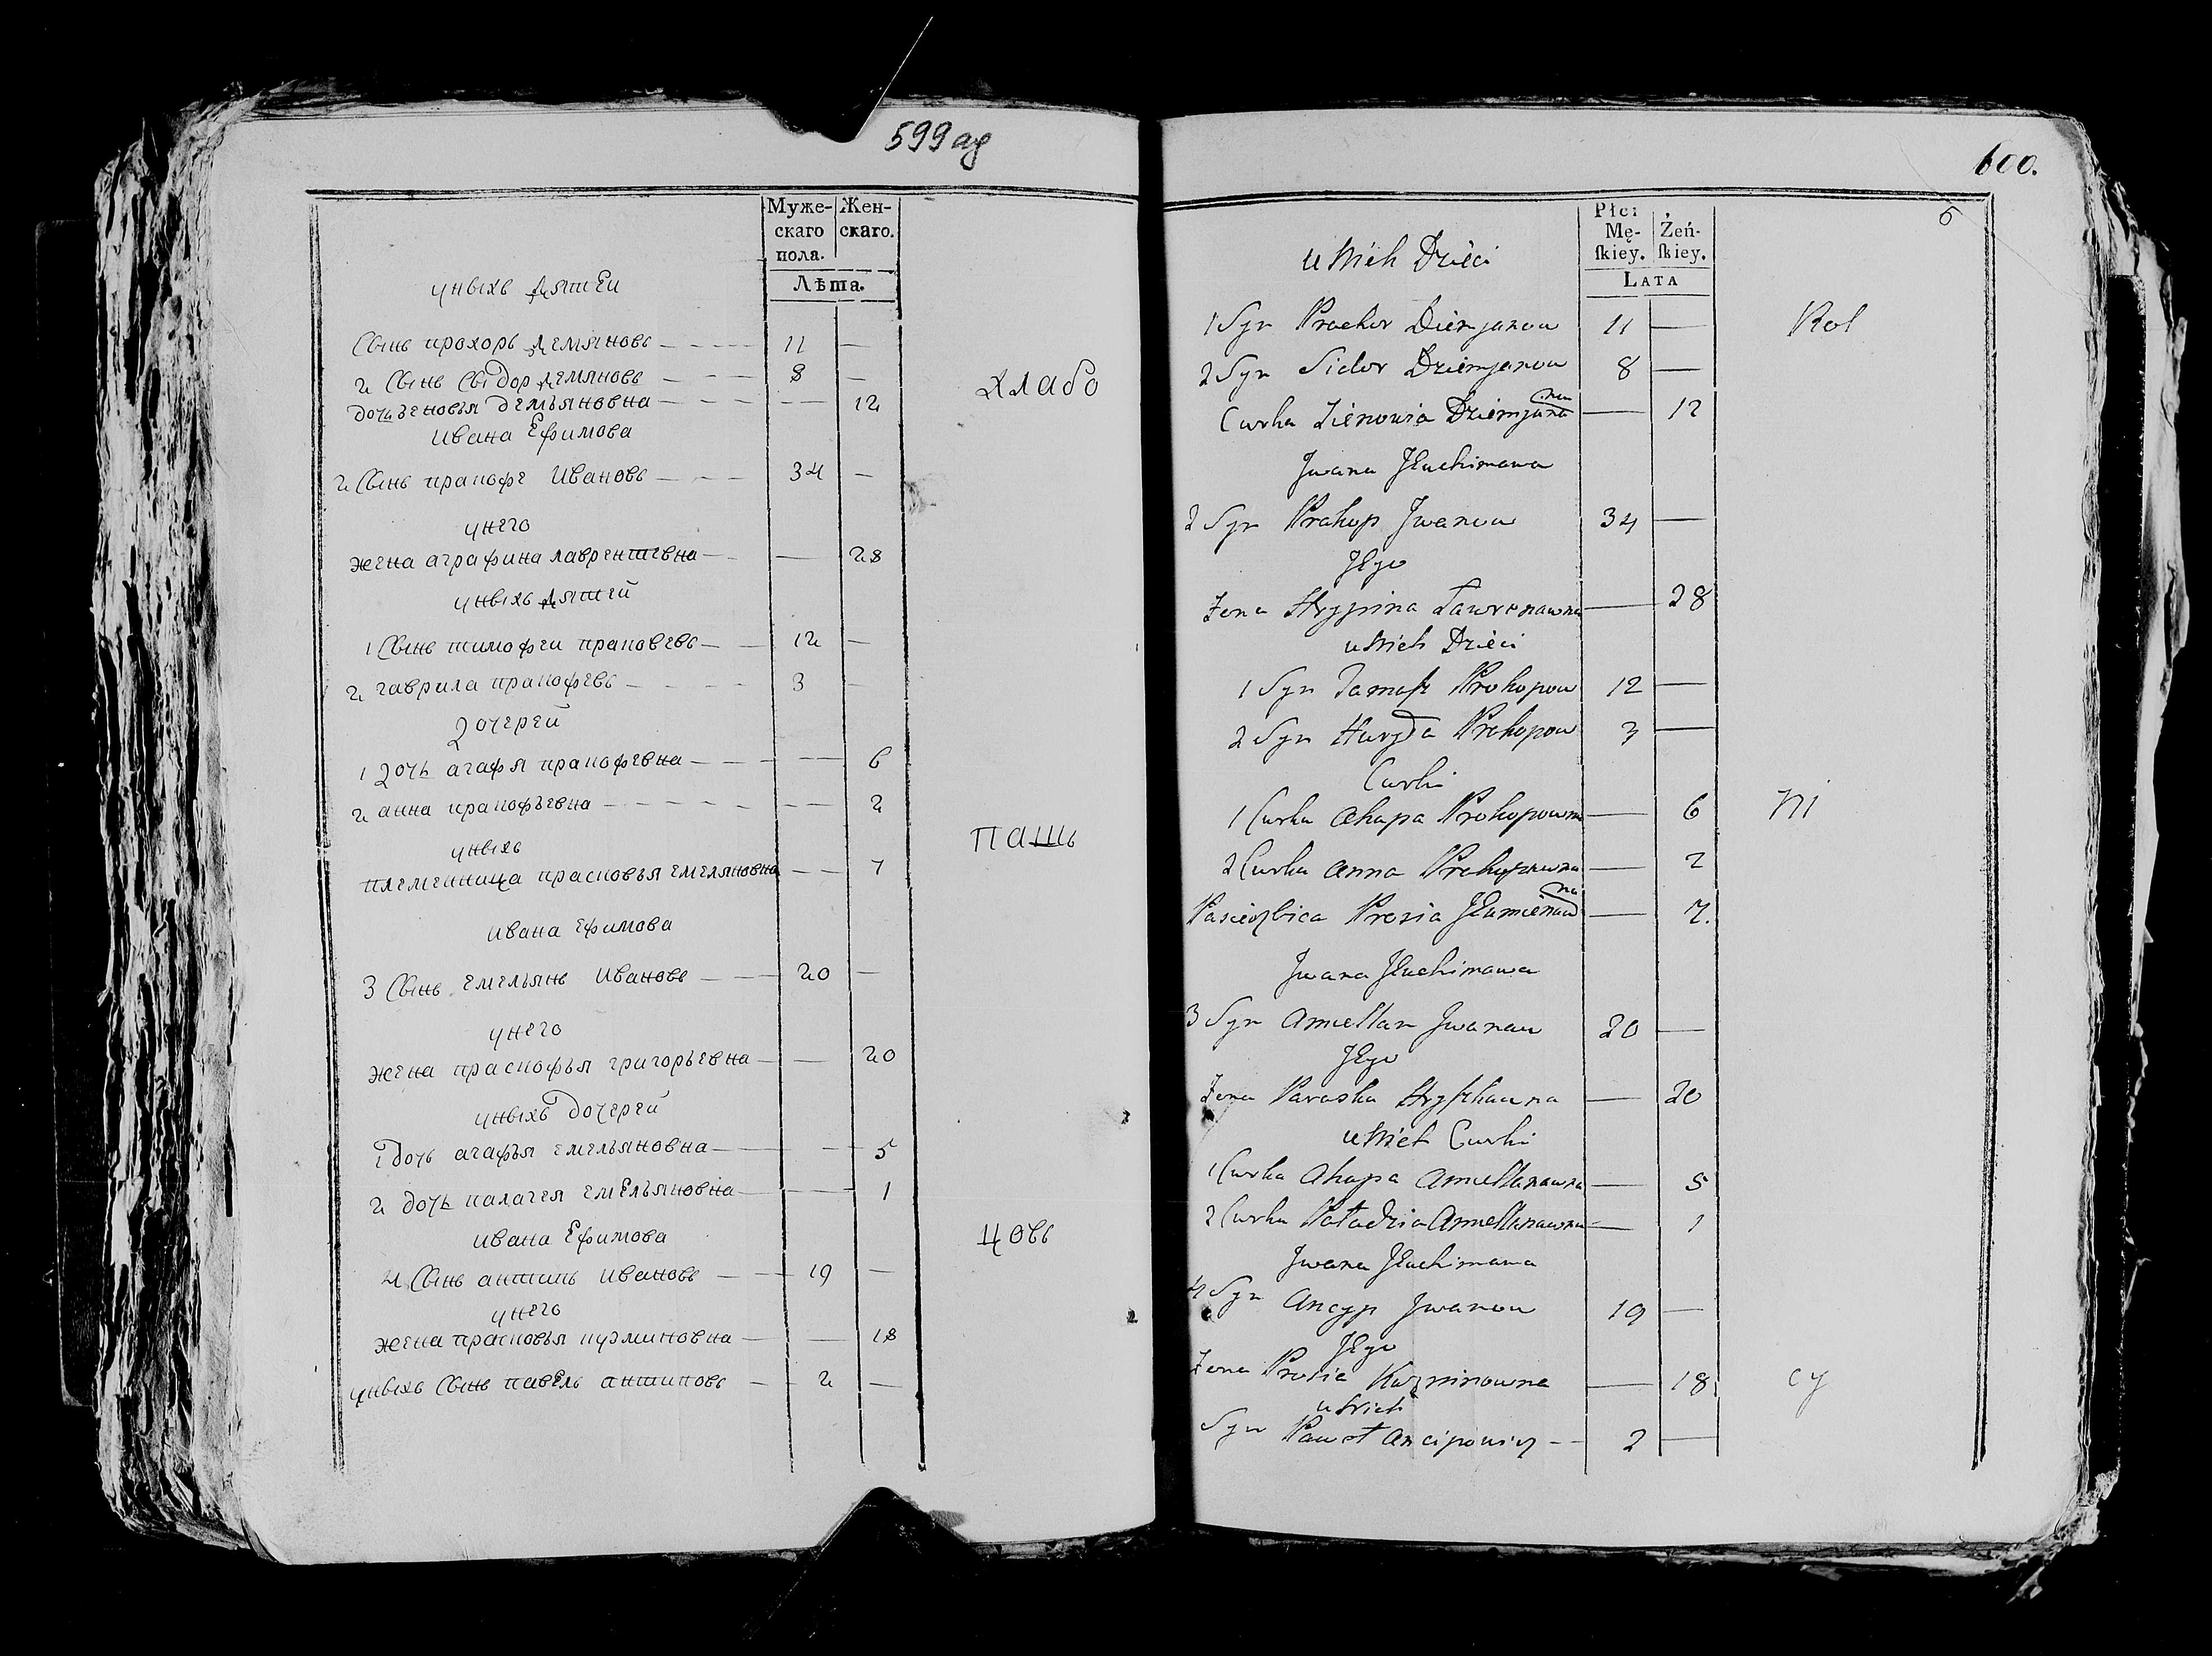 599 ад
Муже-
скаго
пола.
Жен-
скаго.
Лѣта.
унихъ дятеи
Сынъ прохоръ демяновъ 11 —
2 Сынъ Сыдор демяновъ 8 —
дочь зеновья демьяновна — 12
хлабо
ивана Ефимова
2 Сынъ пракофе ивановъ 34 —
унего
жена аграфина лаврентевна — 28
унихъ дятей
1 Сынъ тимофеи пракоаевъ 12 —
2 гаврила пракофевъ 3 —
дочерей
1 дочь агафя пракофевна — 6
2 анна пракофьевна — 2
пашь
унихъ
племенница прасковья емеляновна — 7
ивана ефимова
3 Сынъ емельянъ ивановъ 20 —
унего
жена праскофья григорьевна — 20
унихъ дочерей
1 дочь агафья емельяновна — 5
2 дочь палагея емЕльяновна — 1
ивана Ефимова
цовъ
4 Сынъ антипъ ивановъ 19 —
унего
жена прасковья кузминовна — 18
унихъ Сынъ павЕлъ антиповъ 2 —
600.
6
Płci
Mę-
skiey.
Żeń-
skiey.
LATA
u Nich Dzieci
1 Syn Prochor Dziemjanow 11 —
Rol
2 Syn Sidor Dziemjanow 8 —
Curka Zienowia Dziemjanawna — 12
Jwana Jeuchimawa
2 Syn Prakop Jwanow 34 —
Jego
Zona Hrypina Lawrenawna — 28
u Nich Dzieci
1 Syn Tamasz Prokopow 12 —
2 Syn Hawryła Prokopow 3 —
Curki
1 Curka Ahapa Prokopowna — 6
ni
2 Curka Anna Prokopawna — 2
Pasierzbica Prosia — 7.
Jwana Jeuchimawa
3 Syn Amellan Jwanau 20 —
Jego
Zona Paraska Hryszkauna — 20
u Nich Curki
1 Curka Ahapa Amellanawna — 5
2 Curka Paładzia Amellanawna — 1
Jwana Jeuchimawa
4 Syn Ancyp Jwanow 19 —
Jego
Zona Prosia Kuzminowna — 18
cy
u Nich
Syn Paweł Ancipowicz 2 —